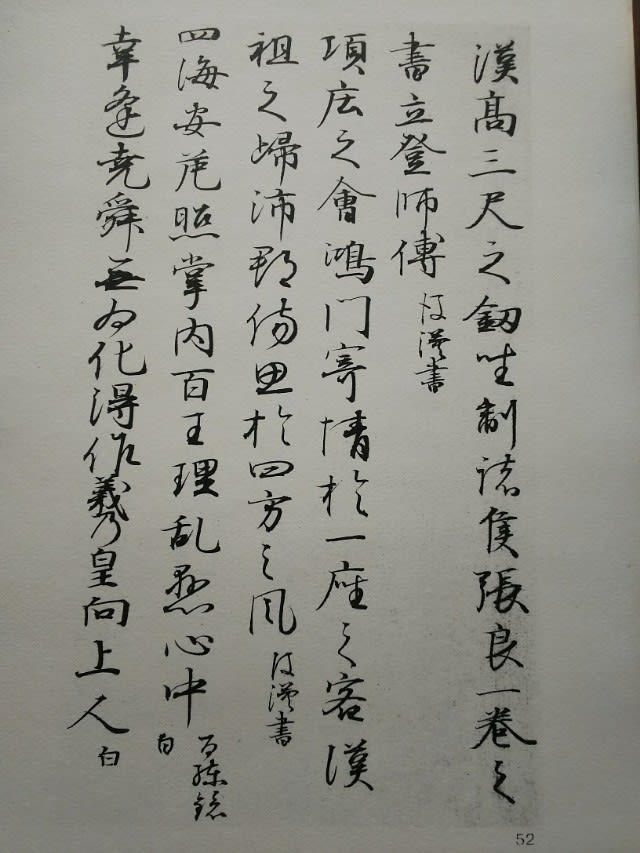 漢高三尺之釼坐制諸侯張良一卷之
書立登師傅 後漢書
項庄之會鴻門寄情於一座之客漢
祖之歸沛郡傷思於四方之風 後漢書
四海安危照掌内百王理乱懸心中 百練鏡 白
幸逢尭舜無為化得作羲皇向上人 白
52